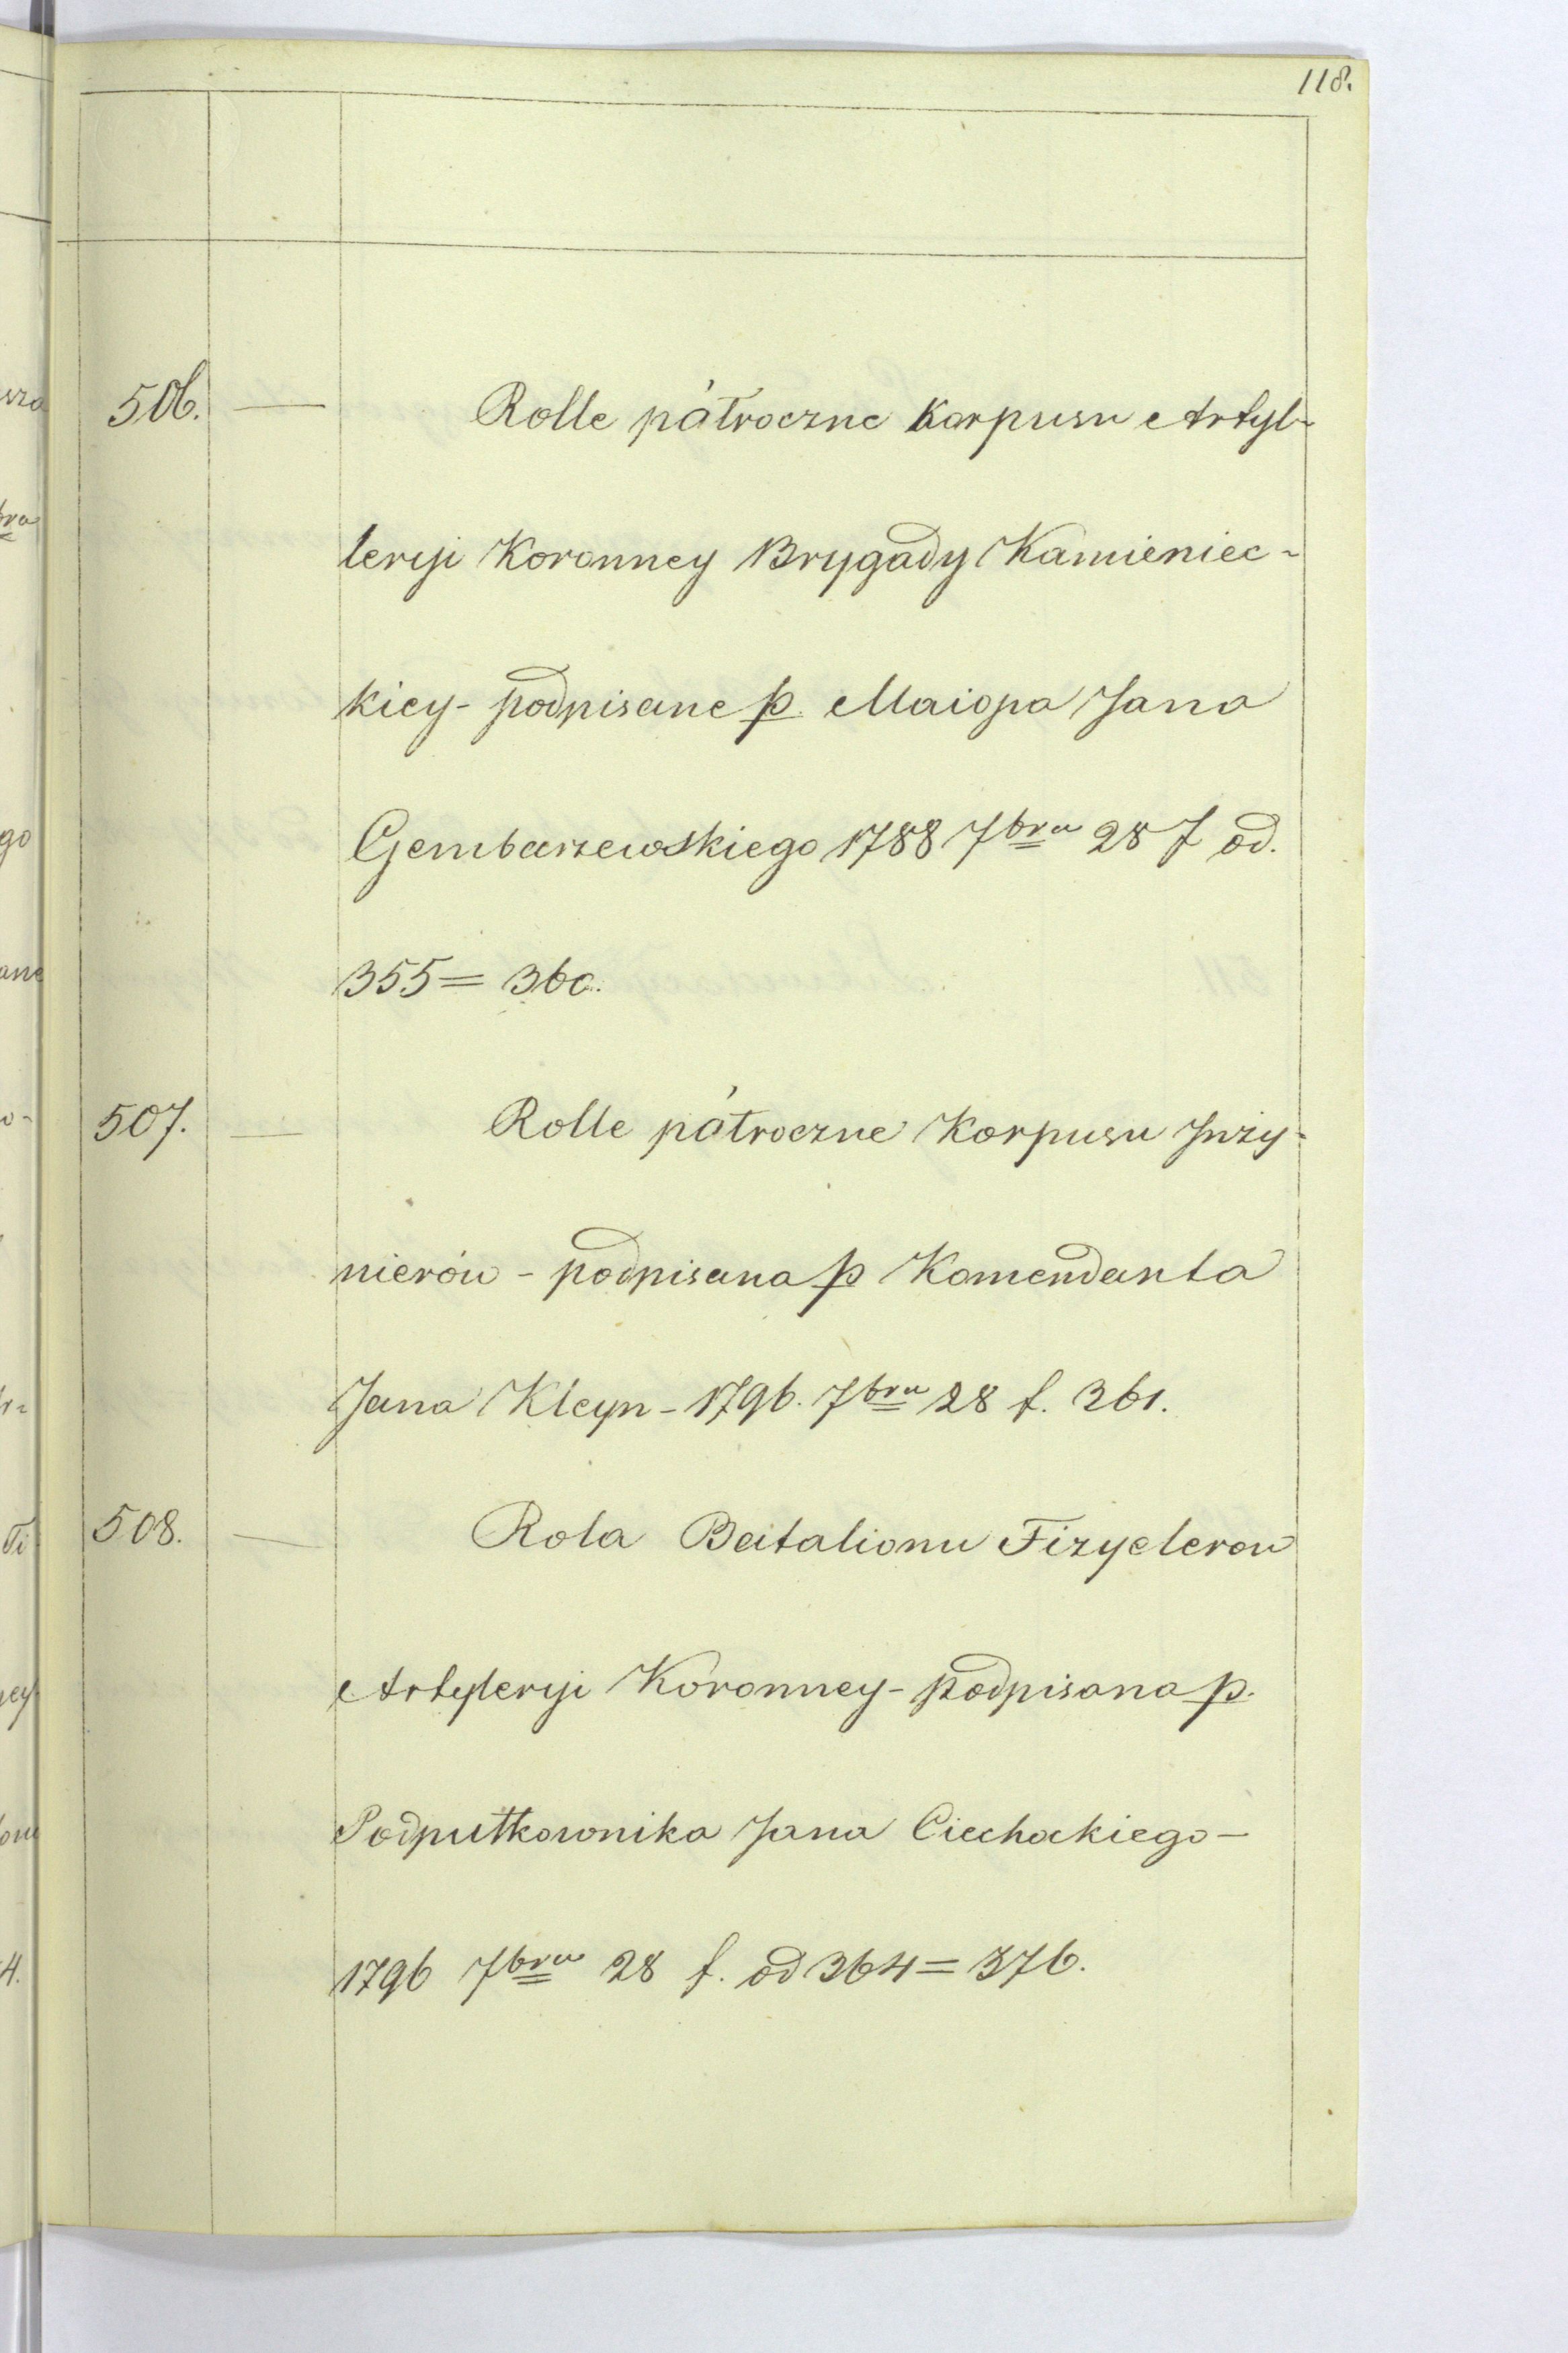 118.
506. — Rolle półroczne Korpusu Artyl-
leryi Koronney Brygady Kamieniec-
kiey - podpisane p. Maiora Jana
Gembarzewskiego 1788 7bra 28 f od.
355 = 360.
507. — Rolle półroczne Korpusu Jnży-
nierów - podpisana p Komendanta
Jana Kleyn - 1796. 7bra 28 f. 361.
508. — Rola Batalionu Fizyelerow
Artyleryi Koronney - podpisana p.
Podpułkownika Jana Ciechockiego —
1796 7bra 28 f. od 364 = 376.